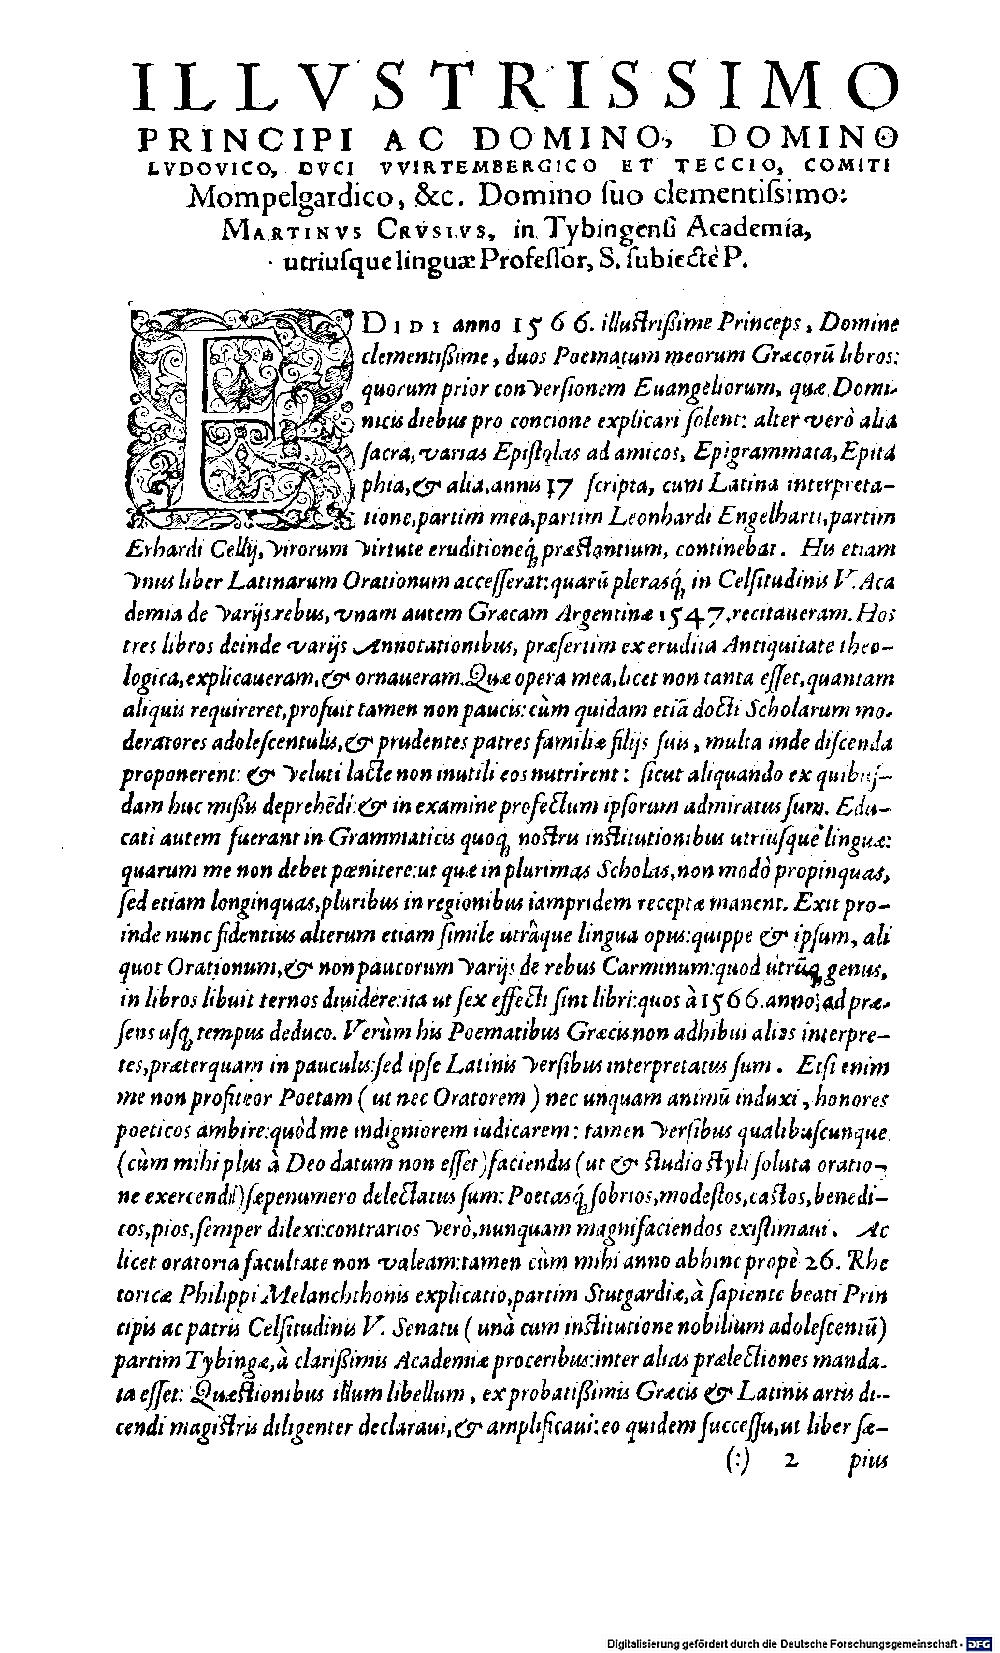 ILLVSTRISSIMO
PRINCIPI AC DOMINO, DOMINO
LVDOVICO, DVCI VVIRTEMBERGICO ET TECCIO, COMITI
Mompelgardico, &c. Domino ſuo clementiſsimo:
MARTINVS CRVSIVS, in Tybingenſi Academia,
utriuſque linguæ Profeſſor, S. ſubiectè P.
EDIDI anno 1566. illuſtrißime Princeps, Domine
clementißime, duos Poematum meorum Græcorū libros:
quorum prior converſionem Euangeliorum, quæ Domi-
nicis diebus pro concione explicari ſolent: alter verò alia
ſacra, varias Epiſtolas ad amicos, Epigrammata, Epita
phia, & alia, annis 17 ſcripta, cum Latina interpreta-
tione, partim mea, partim Leonhardi Engelharti, partim
Erhardi Cellij, virorum virtute eruditioneq́; præſtantium, continebat. His etiam
vnus liber Latinarum Orationum acceſſerat: quarū plerasq́; in Celſitudinis V. Aca
demia de varijs rebus, vnam autem Græcam Argentinæ 1547. recitaueram. Hos
tres libros deinde varijs Annotationibus, præſertim ex erudita Antiquitate theo-
logica, explicaueram, & ornaueram. Quæ opera mea, licet non tanta eſſet, quantam
aliquis requireret, profuit tamen non paucis: cùm quidam etiā docti Scholarum mo-
deratores adoleſcentulis, & prudentes patres familiæ filijs ſuis, multa inde diſcenda
proponerent: & veluti lacte non inutili eos nutrirent: ſicut aliquando ex quibuſ-
dam huc mißis deprehēdi: & in examine profectum ipſorum admiratus ſum. Edu-
cati autem fuerant in Grammaticis quoq; noſtris inſtitutionibus utriuſque linguæ:
quarum me non debet pœnitere: ut quæ in plurimas Scholas, non modò propinquas,
ſed etiam longinquas, pluribus in regionibus iampridem receptæ manent. Exit pro-
inde nunc fidentius alterum etiam ſimile utrâque lingua opus: quippe & ipſum, ali
quot Orationum, & non paucorum varijs de rebus Carminum: quod utrūq; genus,
in libros libuit ternos diuidere: ita ut ſex effecti ſint libri: quos à 1566. anno, ad præ-
ſens uſq; tempus deduco. Verùm his Poematibus Græcis non adhibui alios interpre-
tes, præterquam in pauculis: ſed ipſe Latinis verſibus interpretatus ſum. Etſi enim
me non profiteor Poetam (ut nec Oratorem) nec unquam animū induxi, honores
poeticos ambire: quòd me indigniorem iudicarem: tamen verſibus qualibuſcunque
(cùm mihi plus à Deo datum non eſſet) faciendis (ut & ſtudio ſtyli ſoluta oratio-
ne exercendi) ſæpenumero delectatus ſum: Poetasq́; ſobrios, modeſtos, caſtos, benedi-
cos, pios, ſemper dilexi: contrarios verò, nunquam magnifaciendos exiſtimaui. Ac
licet oratoria facultate non valeam: tamen cùm mihi anno abhinc propè 26. Rhe
toricæ Philippi Melanchthonis explicatio, partim Stutgardiæ, à ſapiente beati Prin
cipis ac patris Celſitudinis V. Senatu (unà cum inſtitutione nobilium adoleſcentiū)
partim Tybingæ, à clarißimis Academiæ proceribus: inter alias prælectiones manda-
ta eſſet: Quæſtionibus illum libellum, ex probatißimis Græcis & Latinis artis di-
cendi magiſtris diligenter declaraui, & amplificaui: eo quidem ſucceſſu, ut liber ſæ-
(:) 2 pius
Digitalisierung gefördert durch die Deutsche Forschungsgemeinschaft - DFG